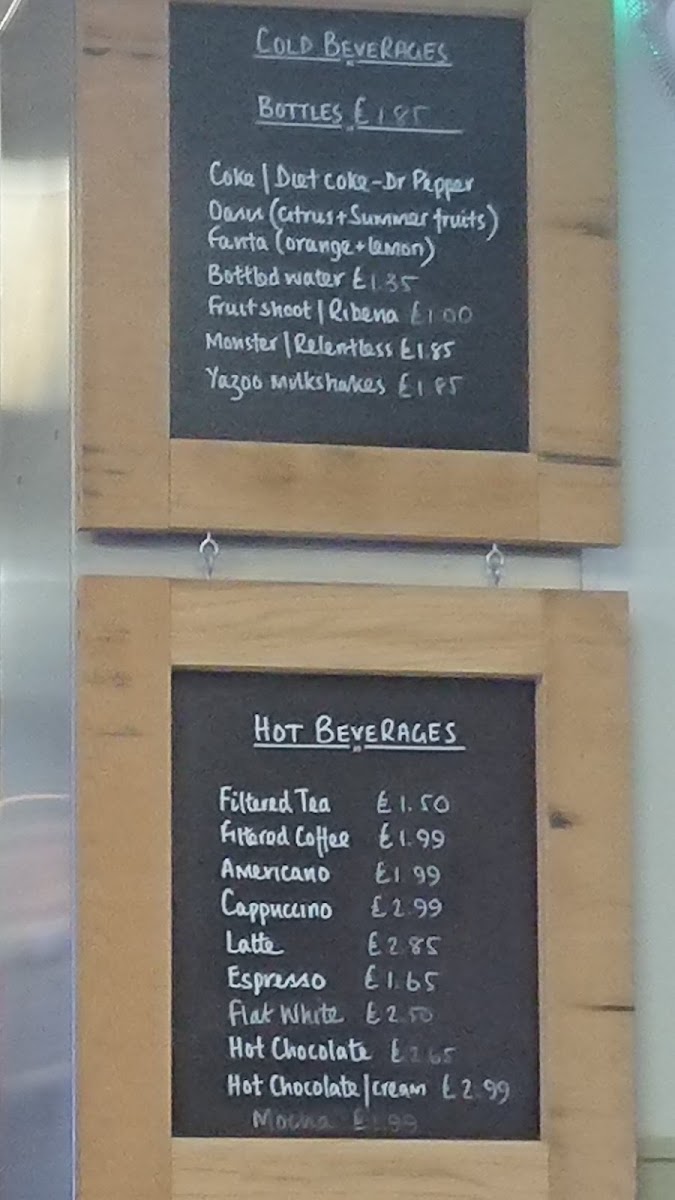 COLD BEVERAGES
BOTTLES £1.85
Coke | Diet coke - Dr Pepper
Oasis (citrus + Summer fruits)
Fanta (orange + lemon)
Bottled water £1.35
Fruitshoot | Ribena £1.00
Monster | Relentless £1.85
Yazoo Milkshakes £1.85
HOT BEVERAGES
Filtered Tea £1.50
Filtered Coffee £1.99
Americano £1.99
Cappuccino £2.99
Latte £2.85
Espresso £1.65
Flat White £2.50
Hot Chocolate £2.65
Hot Chocolate | cream £2.99
Mocha